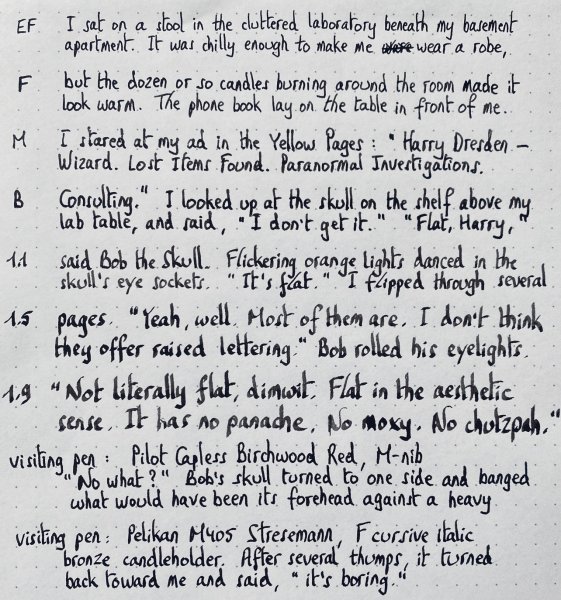 EF I sat on a stool in the cluttered laboratory beneath my basement
apartment. It was chilly enough to make me wear a robe,
F but the dozen or so candles burning around the room made it
look warm. The phone book lay on the table in front of me.
M I stared at my ad in the Yellow Pages: "Harry Dresden –
Wizard. Lost Items Found. Paranormal Investigations.
B Consulting." I looked up at the skull on the shelf above my
lab table, and said, "I don't get it." "Flat, Harry,"
1.1 said Bob the Skull. Flickering orange lights danced in the
skull's eye sockets. "It's flat." I flipped through several
1.5 pages. "Yeah, well. Most of them are. I don't think
they offer raised lettering." Bob rolled his eyelights.
1.9 "Not literally flat, dimwit. Flat in the aesthetic
sense. It has no panache. No moxy. No chutzpah."
visiting pen: Pilot Capless Birchwood Red, M-nib
"No what?" Bob's skull turned to one side and banged
what would have been its forehead against a heavy
visiting pen: Pelikan M405 Stresemann, F cursive italic
bronze candleholder. After several thumps, it turned
back toward me and said, "it's boring."